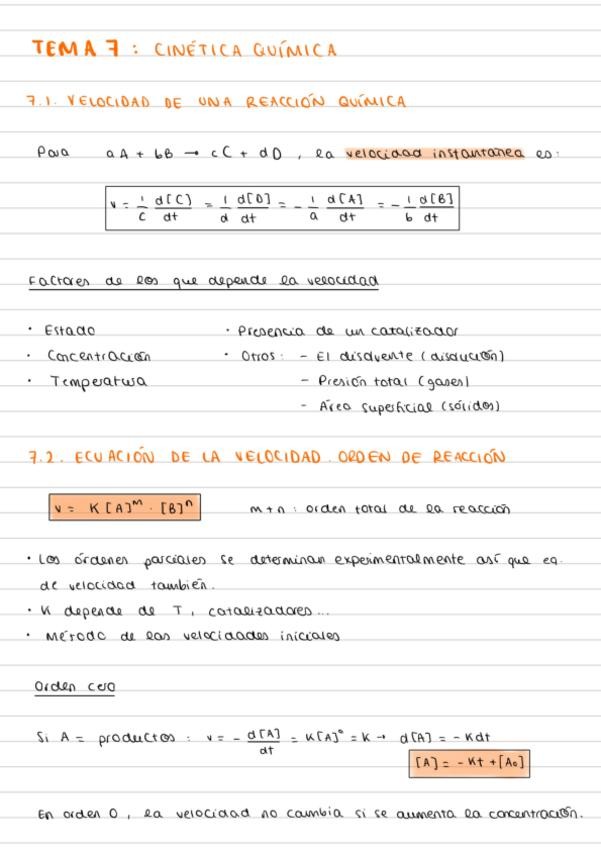 TEMA 7 : CINÉTICA QUÍMICA
7.1. VELOCIDAD DE UNA REACCIÓN QUÍMICA
Para aA + bB → cC + dD , la velocidad instantánea es:
v = 1/c d[C]/dt = 1/d d[D]/dt = - 1/a d[A]/dt = - 1/b d[B]/dt
Factores de los que depende la velocidad
· Estado
· Concentración
· Temperatura
· Presencia de un catalizador
· Otros : - El disolvente (disolución)
- Presión total (gases)
- Área superficial (sólidos)
7.2. ECUACIÓN DE LA VELOCIDAD. ORDEN DE REACCIÓN
v = K [A]^m · [B]^n m + n : orden total de la reacción
· Los órdenes parciales se determinan experimentalmente así que eq.
de velocidad también.
· K depende de T, catalizadores...
· Método de las velocidades iniciales
Orden cero
Si A = productos : v = - d[A]/dt = K[A]° = K → d[A] = - Kdt
[A] = - Kt + [A₀]
En orden 0, la velocidad no cambia si se aumenta la concentración.